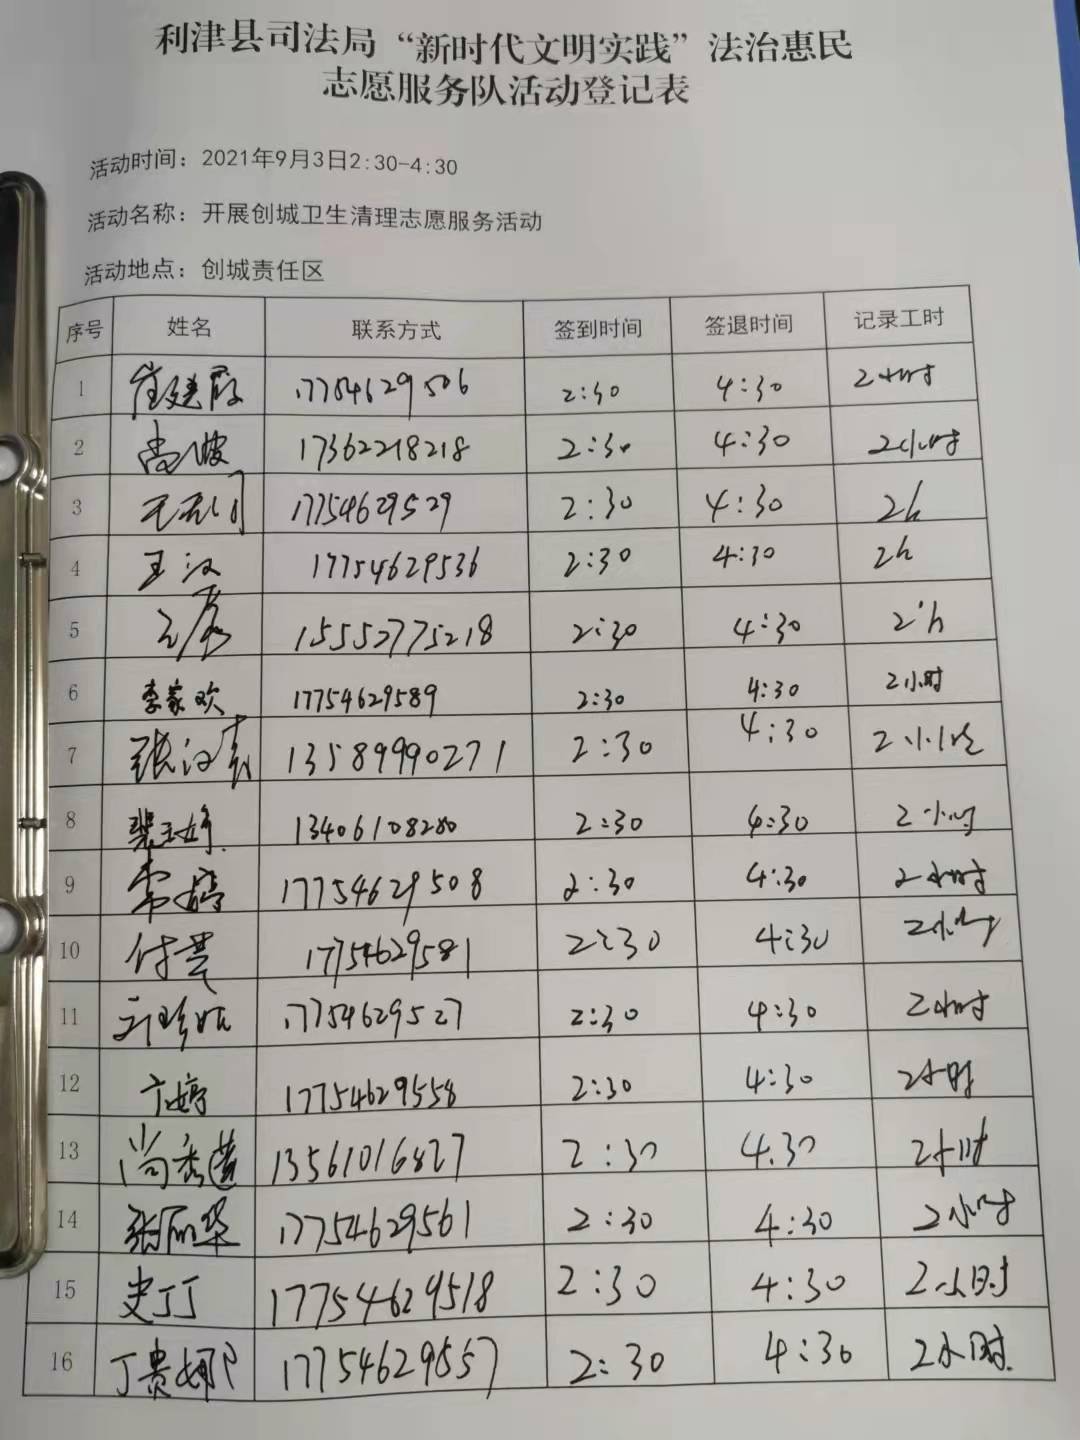 利津县司法局“新时代文明实践”法治惠民
志愿服务队活动登记表
活动时间：2021年9月3日2:30-4:30
活动名称：开展创城卫生清理志愿服务活动
活动地点：创城责任区
序号 姓名 联系方式 签到时间 签退时间 记录工时
1 崔建 17754629506 2:30 4:30 2小时
2 尚波 17362218218 2:30 4:30 2小时
3 17754629529 2:30 4:30 2h
4 王汉 17754629536 2:30 4:30 2h
5 15552775218 2:30 4:30 2h
6 李家欢 17754629589 2:30 4:30 2小时
7 张汉 13589990271 2:30 4:30 2小时
8 裴玉婷 13406108280 2:30 4:30 2小时
9 常婷 17754629508 2:30 4:30 2小时
10 付 17754629581 2:30 4:30 2小时
11 17754629527 2:30 4:30 2小时
12 婷 17754629558 2:30 4:30 2小时
13 尚秀莲 13561016827 2:30 4.30 2小时
14 张丽华 17754629561 2:30 4:30 2小时
15 史丁丁 17754629518 2:30 4:30 2小时
16 丁贵娜 17754629557 2:30 4:30 2小时